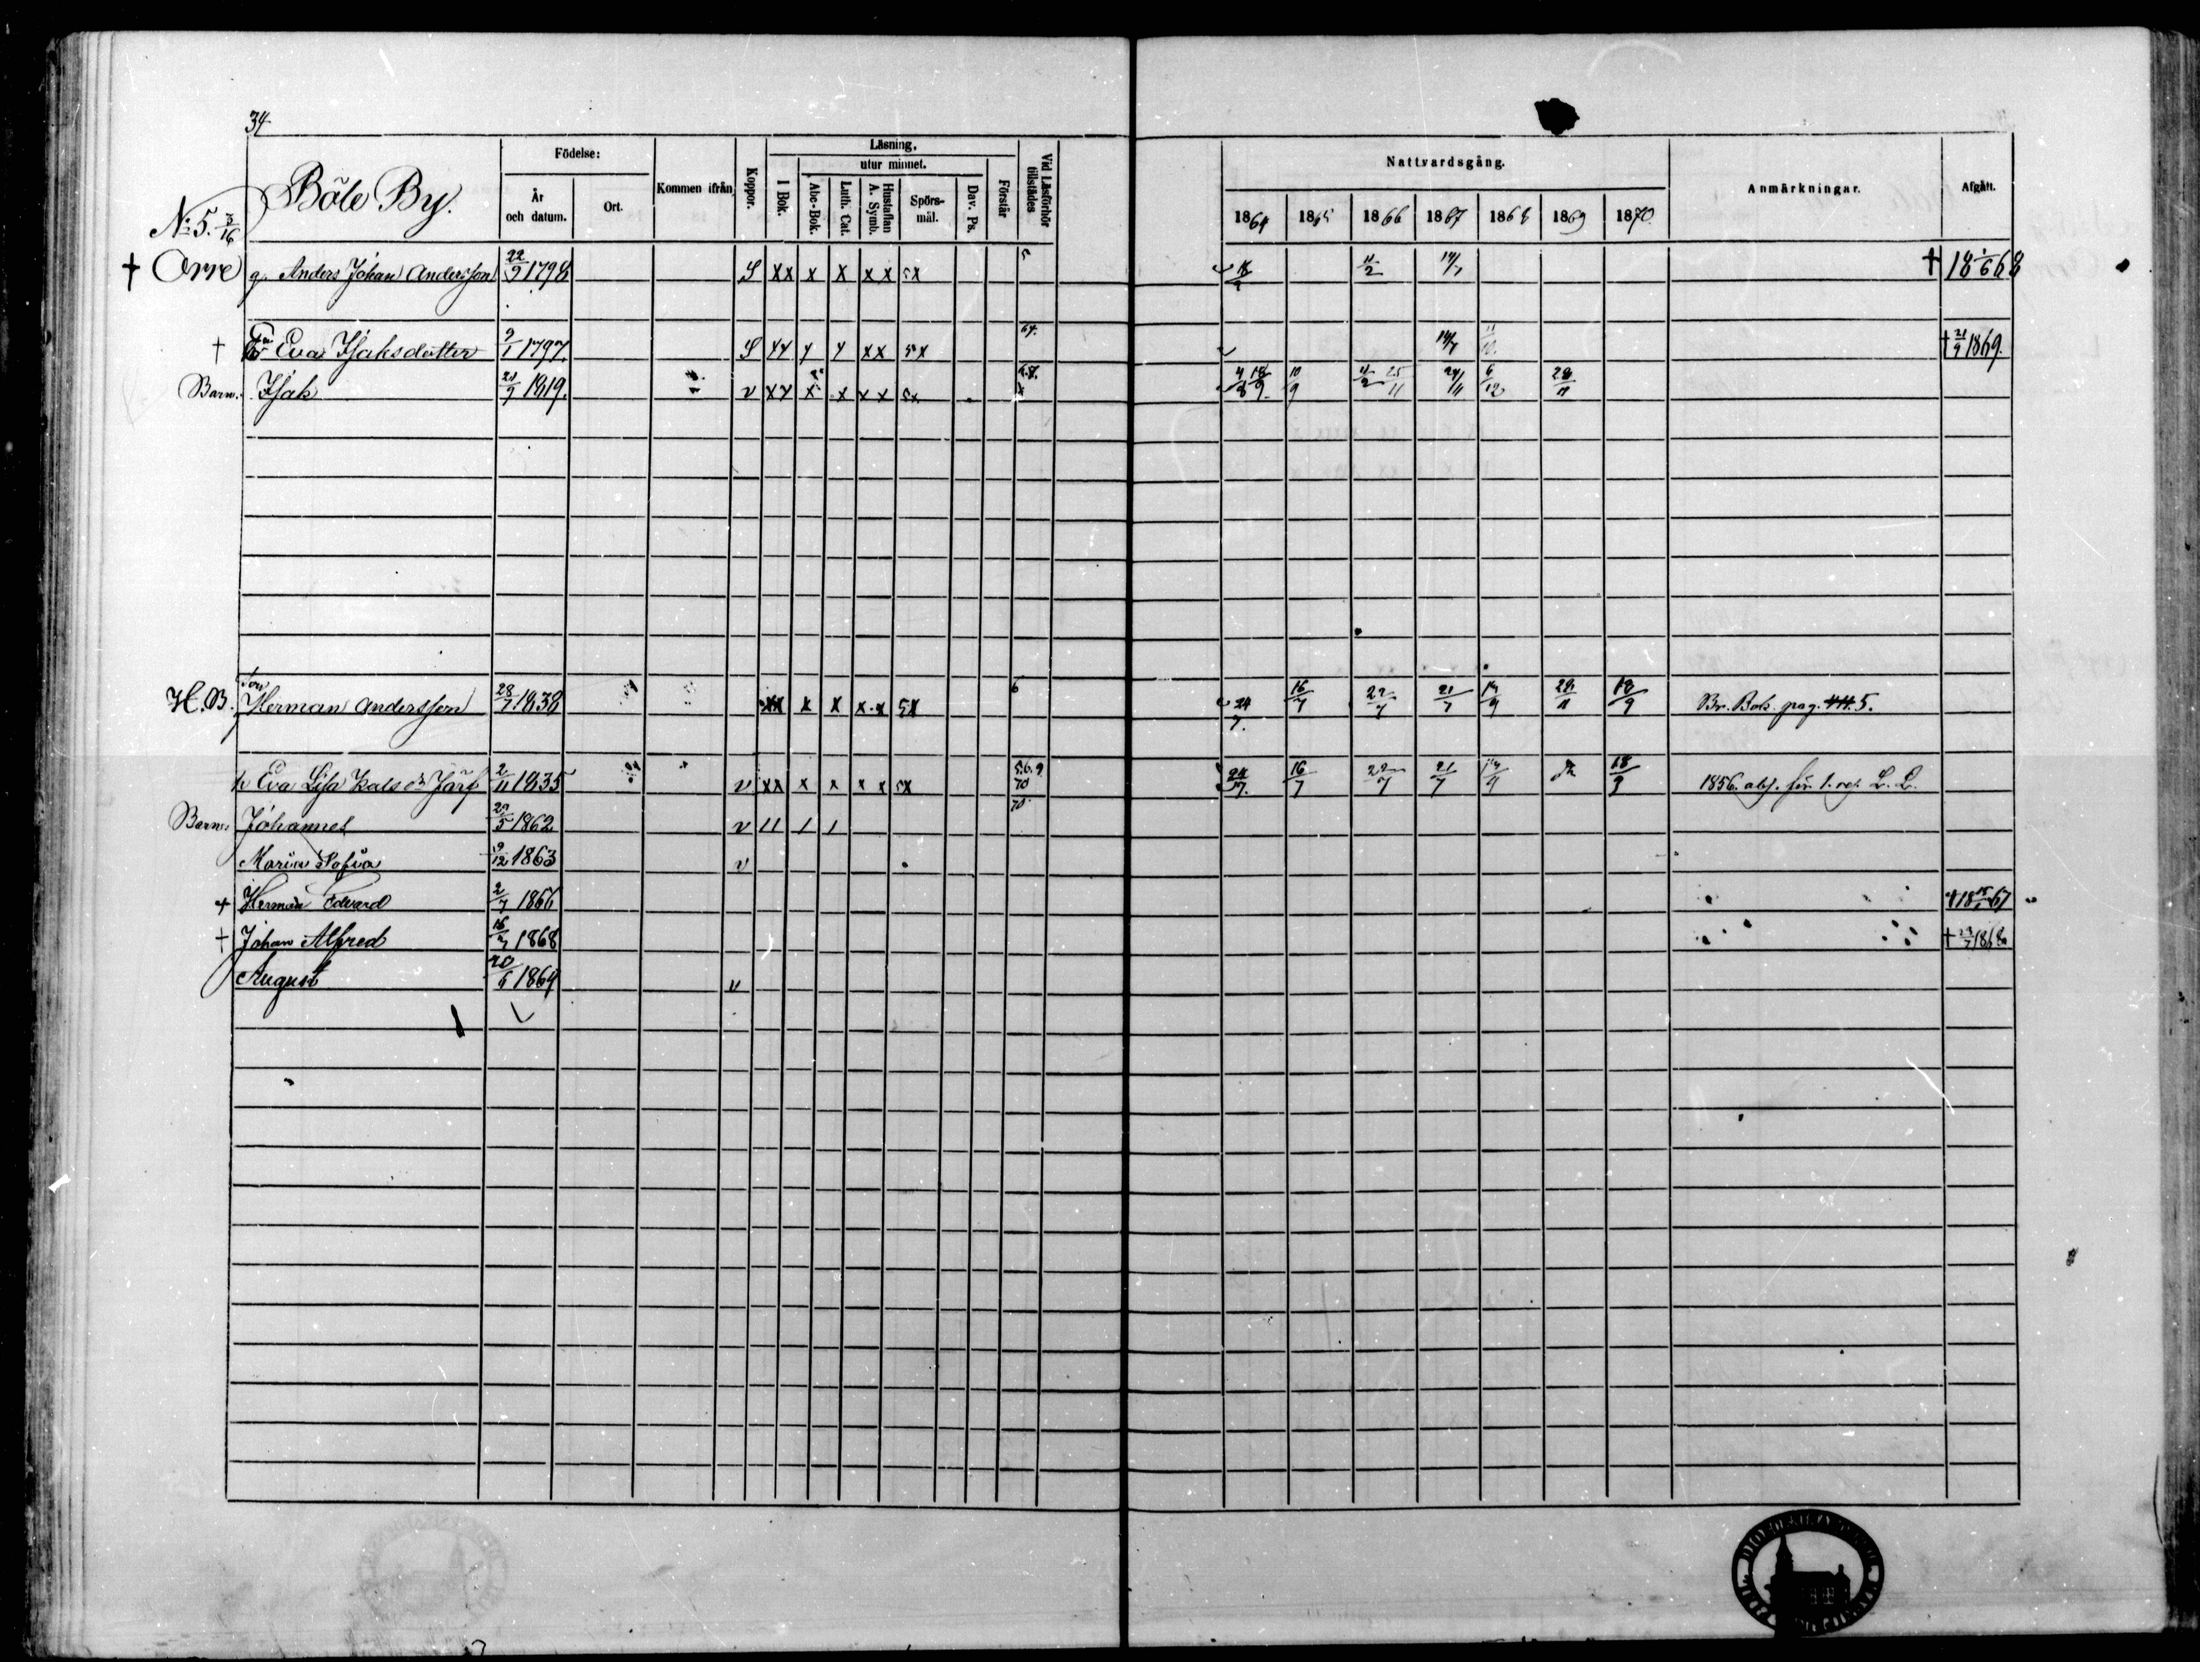 34
Böle By.
Födelse:
År och datum.
Ort.
Kommen ifrån
Koppor.
Läsning,
I Bok.
utur minnet.
Abc-Bok.
Luth. Cat.
Hustaflan A. Symb.
Spörsmål.
Dav. Ps.
Förstår
Vid Läsförhör tillstädes
Nattvardsgång.
1864 1865 1866 1867 1868 1869 1870
Anmärkningar.
Afgått.
No 5. 3/16
† Orre g. Anders Johan Andersson 22/9 1798 S xx x x xx 5x 5 11/2 14/7 † 18 1/6 68
† Eva Isaksdotter 2/1 1797. S xx x x xx 5x 64. 14/7 † 21/9 1869.
Barn. Isak 21/9 1819. v xx x x xx 5x 4/8 18/9 10/9 11/2 25/11 24/11 6/12 28/11
H. B. Son Herman Andersson 28/7 1838 xx x x x x 5x 6 24/7. 16/7 22/7 21/7 19/9 28/11 18/9 Br. Bok. pag. 5.
h Eva Lisa Isaks dr Järf 2/11 1835 v xx x x x x 5x 5.6.9 70 24/7. 16/7 22/7 21/7 19/9 18/9 1856. abs. för 1. res. L. L.
Barn: Johannes 27/5 1862 v 11 1 1 70
Maria Sofia 9/12 1863 v
† Herman Edvard 2/7 1866 † 18 15/1 67
† Johan Alfred 16/7 1868 † 23/7 1868
August 20/6 1864 v